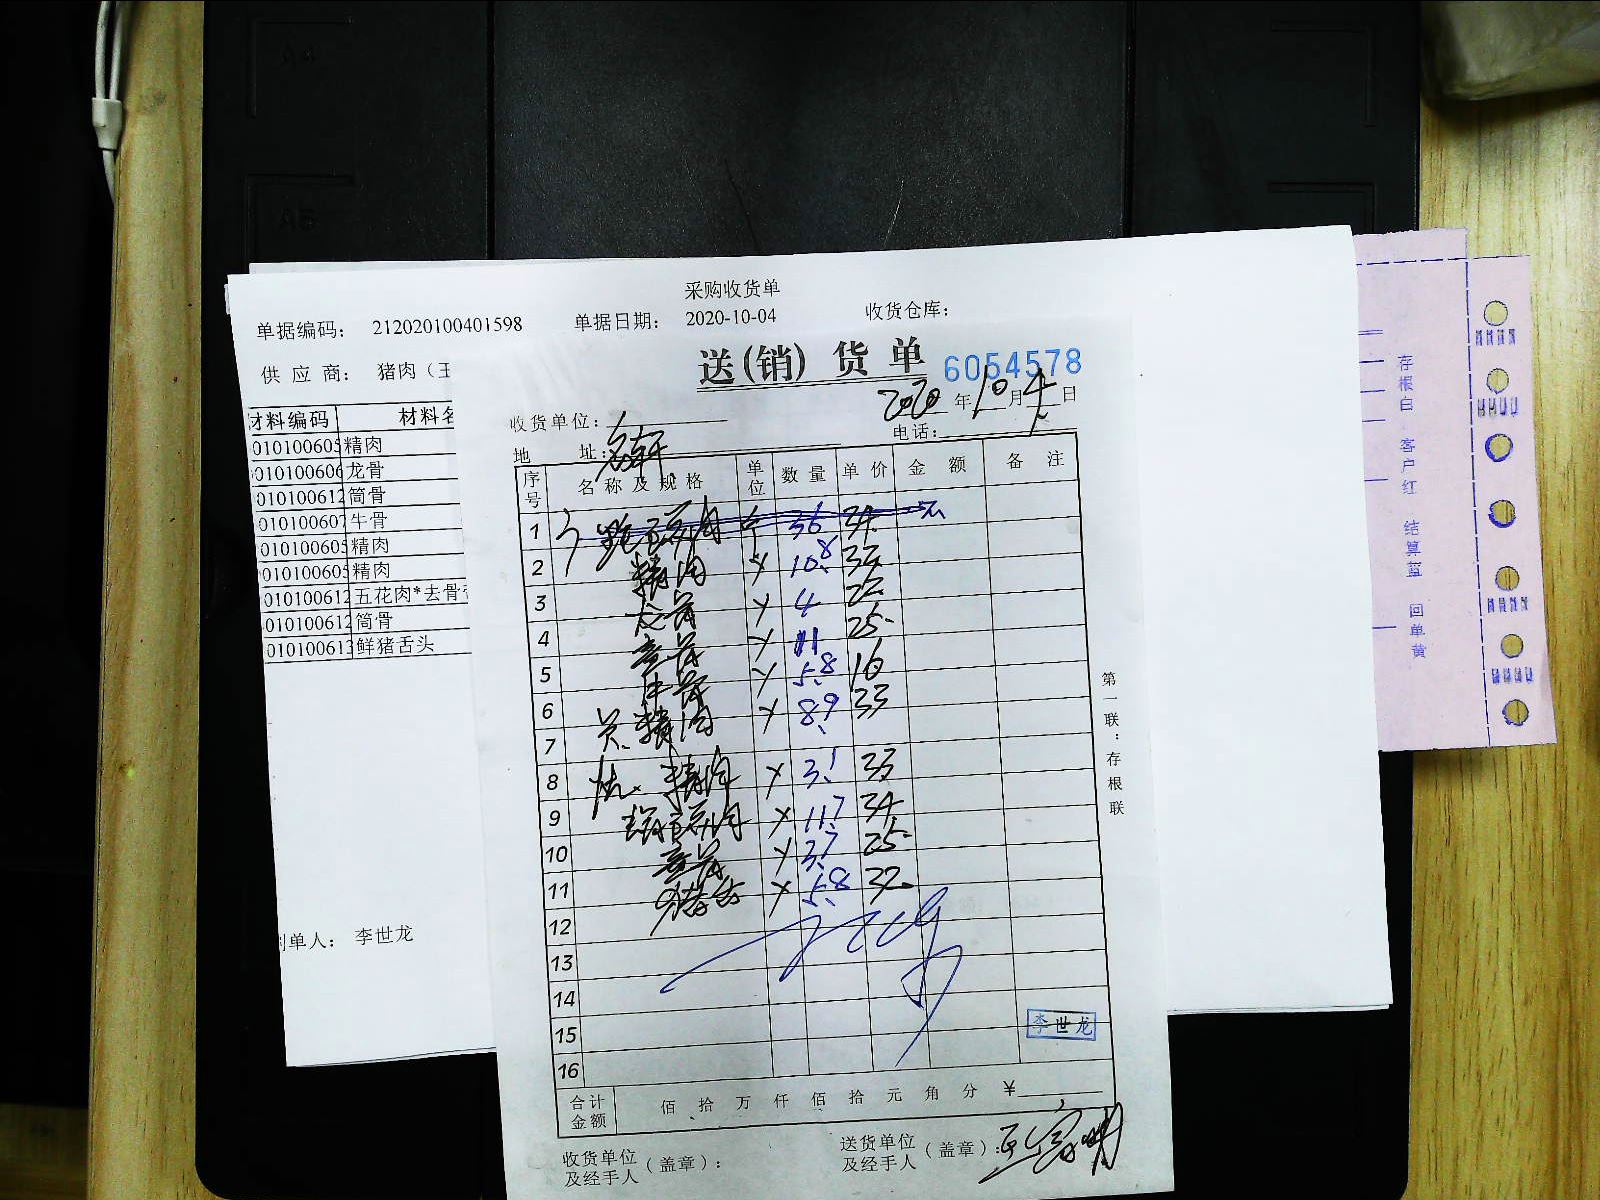 采购收货单
单据编码： 212020100401598 单据日期： 2020-10-04 收货仓库：
供 应 商： 猪肉（王
材料编码 材料名
010100605 精肉
010100606 龙骨
010100612 筒骨
010100607 牛骨
010100605 精肉
010100605 精肉
010100612 五花肉*去骨
010100612 筒骨
010100613 鲜猪舌头
制单人： 李世龙
送(销)货单 6054578
2020 年 10 月 4 日
收货单位：
电话：
地 址：名轩
序号 名称及规格 单位 数量 单价 金额 备注
1 36 34
2 精肉 10.8 33
3 龙骨 4 22
4 11 25
5 5.8 16
6 精肉 8.9 33
7
8 精肉 3.1 33
9 11.7 34
10 3.7 25
11 5.8 32
12
13
14
15
16
李世龙
合计金额 佰 拾 万 仟 佰 拾 元 角 分 ¥
收货单位及经手人（盖章）：
送货单位及经手人（盖章）：王家明
第一联：存根联
存根白 客户红 结算蓝 回单黄